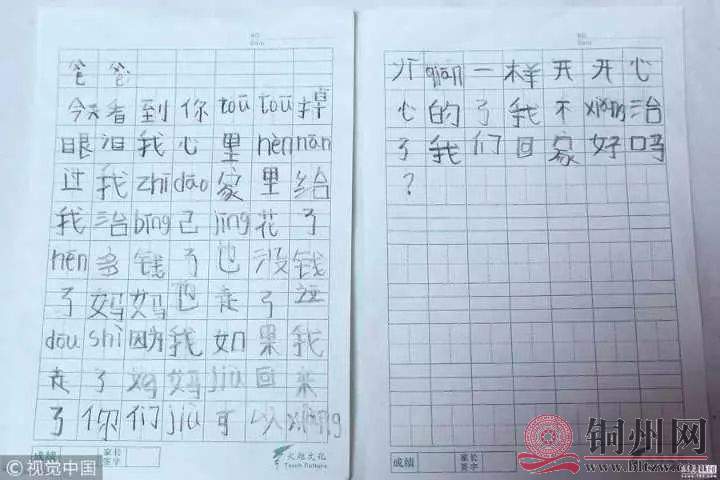 NO.
Date
爸爸
今天看到你tōu tōu掉
眼泪我心里hěn nán
过我zhī dāo家里给
我治bīng己jīng花了
hēn多钱了也没钱
了妈妈也走了这
dōu shì因为我如果我
走了妈妈jiù回来
了你们jiù可以xiàng
成绩
家长
签字
火炬文化
Torch Culture
NO.
Date
以qián一样开开心
心的了我不xiǎng治
了我们回家好吗
？
成绩
家长
签字
©视觉中国
铜州网
www.bltzw.com